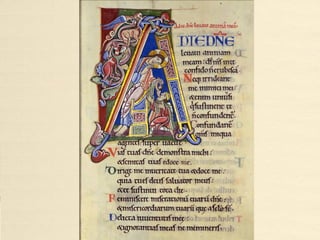 DTEDNE
leuaui animam
meam: ds ms in te
confido n erubescā
Neq; irrideant
me inimici mei
sustinent te
n confundent
Confundant
iniqua
super uacue
Vias tuas dne demonstra michi:
& semitas tuas edoce me.
Dirige me in ueritate tua & doce me:
quia tu es deus saluator meus
& te sustinui tota die.
Reminiscere miserationū tuarū dne:
& misericordiarum tuarū que a
Delicta iuuentutis mee:
& ignorantias meas ne memineris